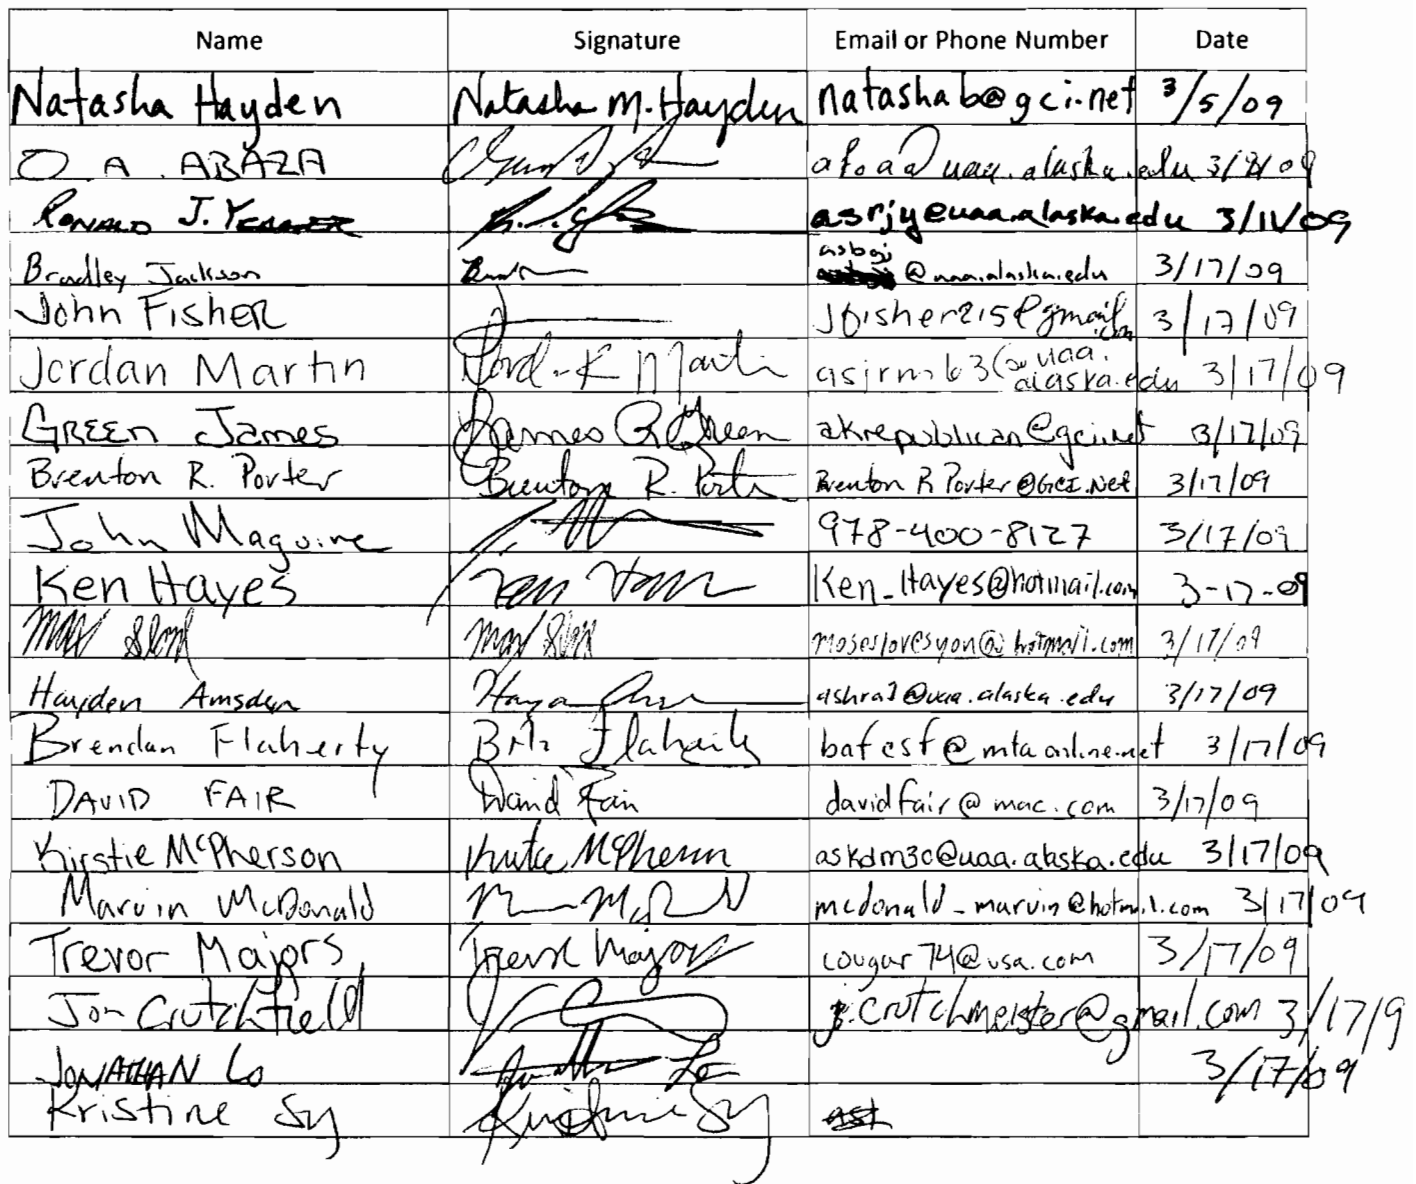 Name Signature Email or Phone Number Date
Natasha Hayden Natasha M. Hayden natashab@gci.net 3/5/09
O. A. ABAZA afoaa@uaa.alaska.edu
RONALD J. asrjy@uaa.alaska.edu 3/11/09
Bradley Jackson asbgj @uaa.alaska.edu 3/17/09
John FISHER jfisher215@gmail.com 3/17/09
Jordan Martin Jord K Martin 3/17/09
GREEN James James R Green akrepublican@gci.net 3/17/09
Brenton R. Porter Brenton R. Porter Brenton R Porter@GCI.Net 3/17/09
John Maguire 978-400-8127 3/17/09
Ken Hayes Ken Ken_Hayes@hotmail.com 3-17-09
moseslovesyou@hotmail.com 3/17/09
Hayden Amsden ashra2@uaa.alaska.edu 3/17/09
Brendan Flaherty Flaherty bafcsf@mtaonline.net 3/17/09
DAVID FAIR David Fair davidfair@mac.com 3/17/09
Kirstie McPherson Kirstie McPherson askdm3c@uaa.alaska.edu 3/17/09
Marvin McDonald mcdonald_marvin@hotmail.com 3/17/09
Trevor Majors Trevor Majors cougar74@usa.com 3/17/09
Jon Crutchfield j.crutchmeister@gmail.com 3/17/9
JONATHAN Lo Lo 3/17/09
Kristine Sy Kristine Sy